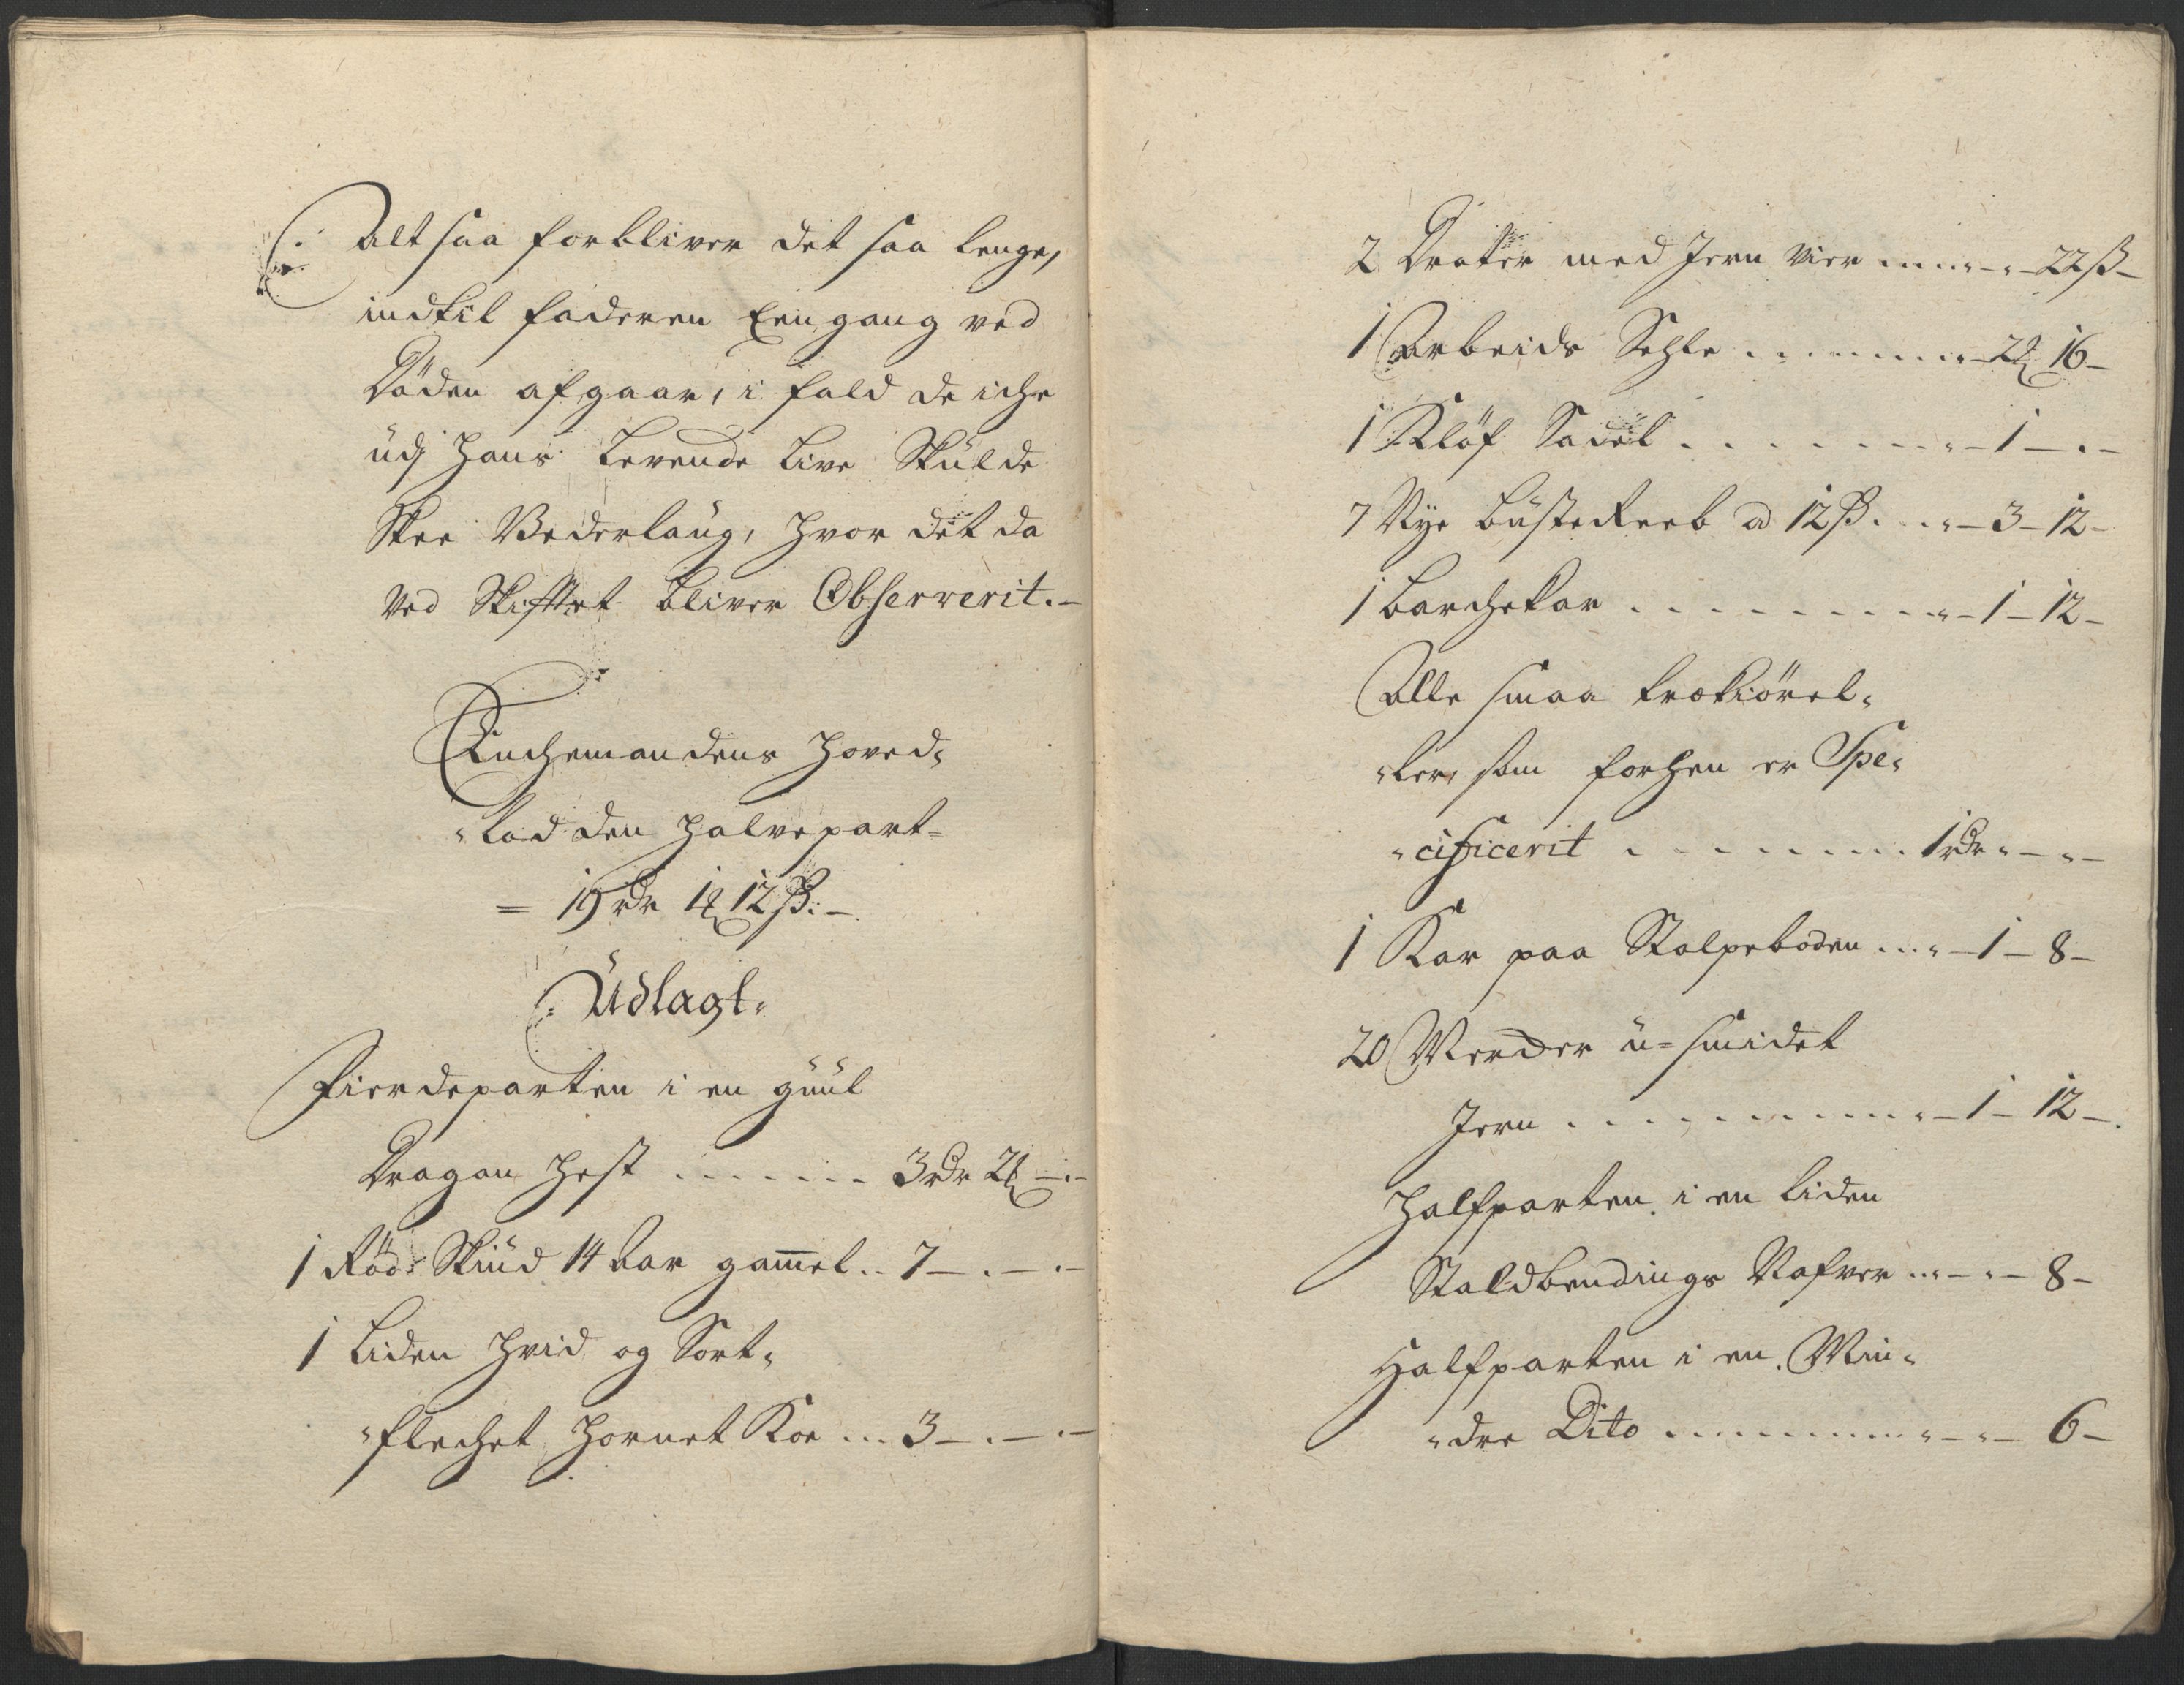 Alt saa forbliver det saa lenge,
indtil faderen Een gang ved
Döden afgaar, i fald de iche
udj Hans Levende Live Skulde
Skee Vederlaug, hvor det da
ved Skifftet bliver Observerit.–
Enchemandens Hoved-
-Lod den Halvepart
= 19 rdr 1 ℔ 12 ß.–
Udlagt.
Fierdeparten i en guul
Dragon Hest ....... 3 rdr 2 –.–
1 Röd Skiud 14 Aar gam̄el .. 7 –.–.–
1 Liden Hvid og Sort-
-flechet Hornet Koe ... 3 –.–.–
2 Drater med Jern vier ...... – 22 ß –
1 Arbeids Sehle ......... – 2 16 –
1 Kløf Sadel ......... – 1 –.–
7 Nye buste Reeb a 12 ß ... – 3 – 12 –
1 barchekar .......... – 1 – 12 –
Alle smaa trækiörel-
-ler, som forhen er Spe-
-cificerit ........ 1 rdr – –
1 Kar paa Stolpeboden ... – 1 – 8 –
20 Merder u-smidet
Jern .......... – 1 – 12 –.
Halfparten i en liden
Staldbendings Nafver ... – – 8 –
Halfparten i en Min-
-dre Dito ......... – – 6 –